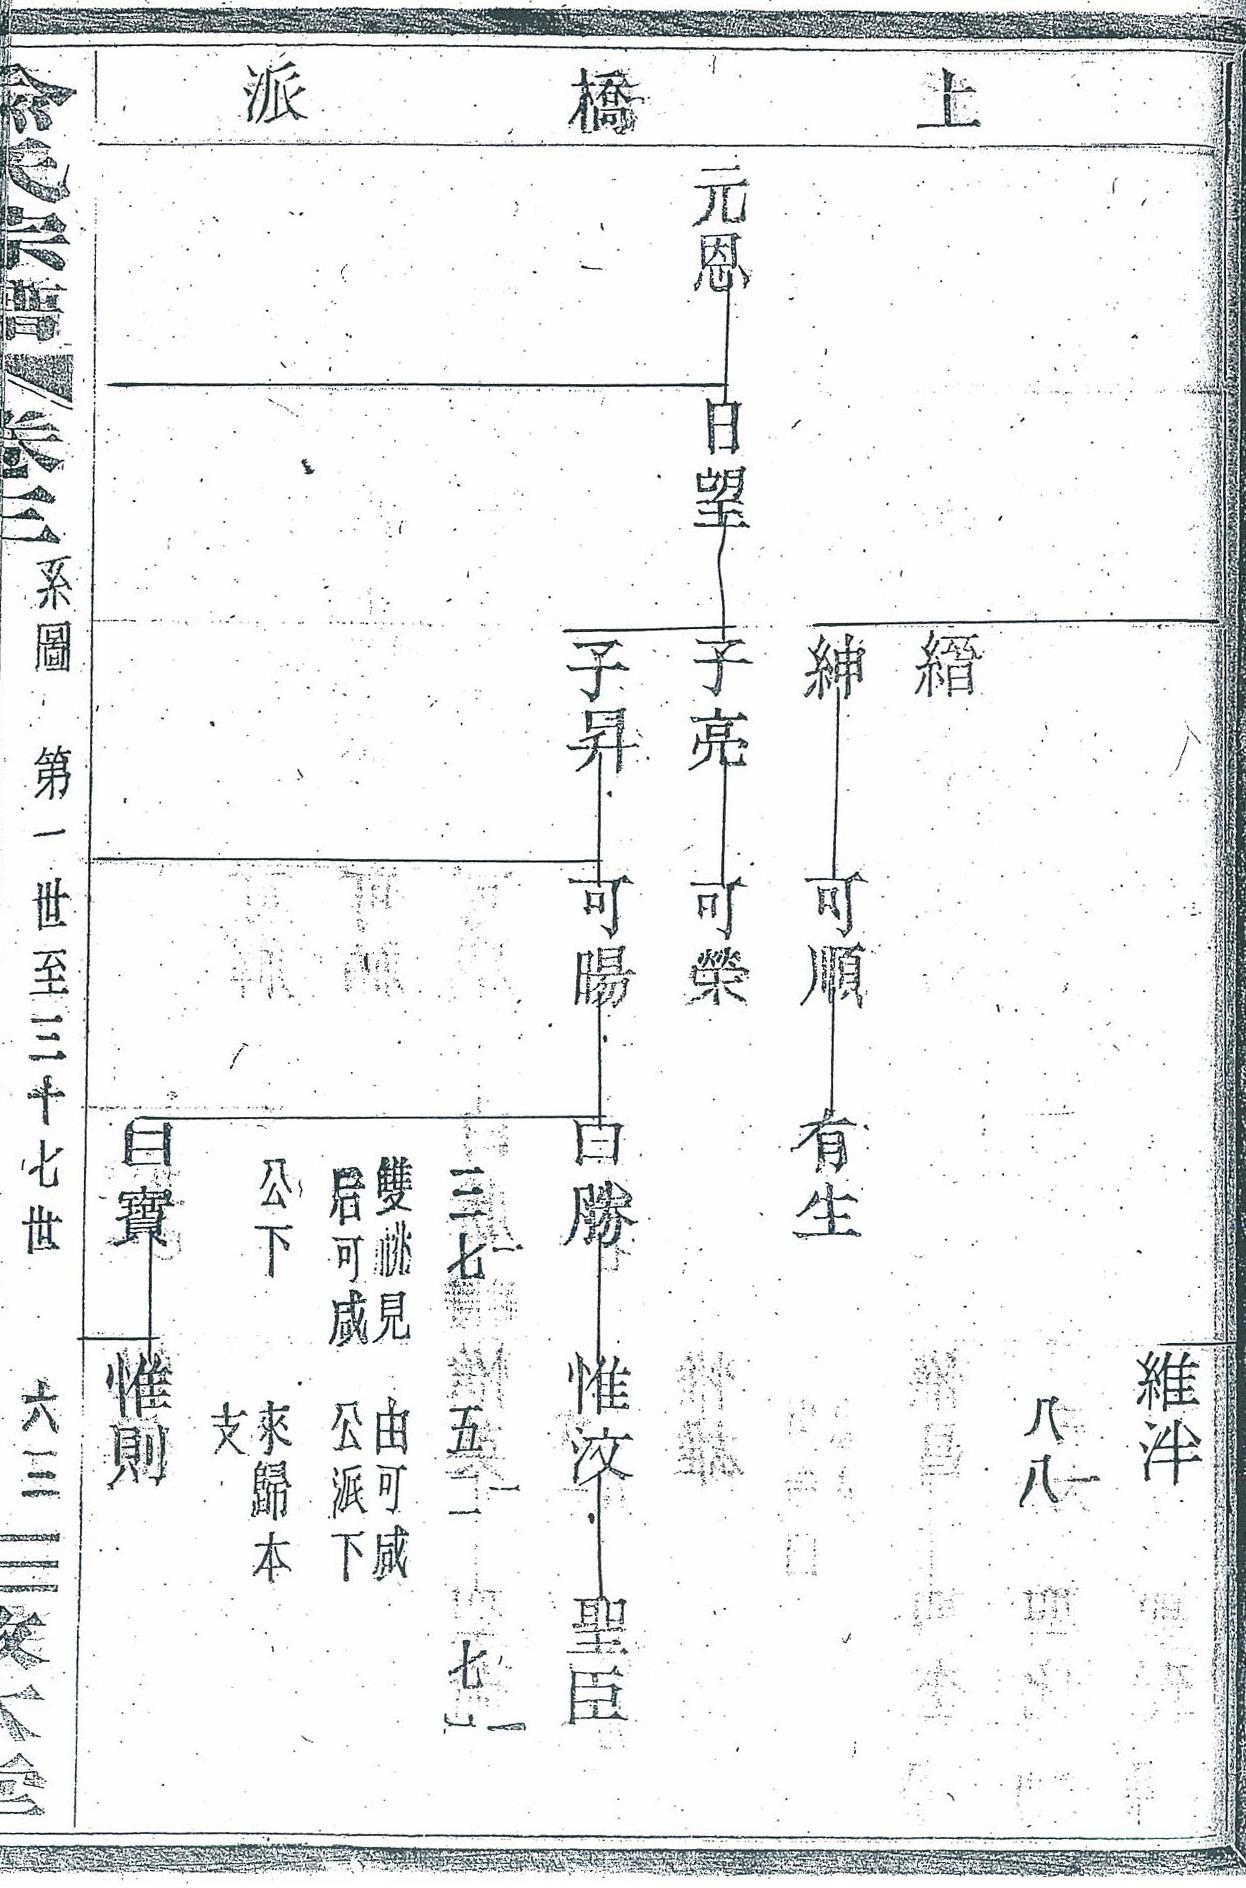 上橋派
維泮
八八
縉
紳 可順 有生
元恩 日望 子亮 可榮
子昇 可陽 自勝 惟汶 聖臣
三七 五二 七
雙祧見 由可咸
后可咸 公派下
公下 來歸本
支
自寶 惟則
俞氏宗譜 卷三 系圖 第一世至三十七世 六三 三